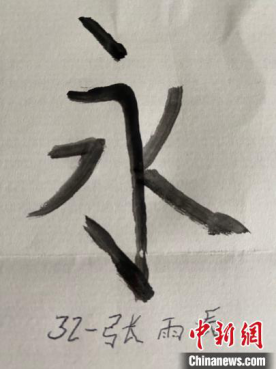 永
32-张雨
中新网
Chinanews.com